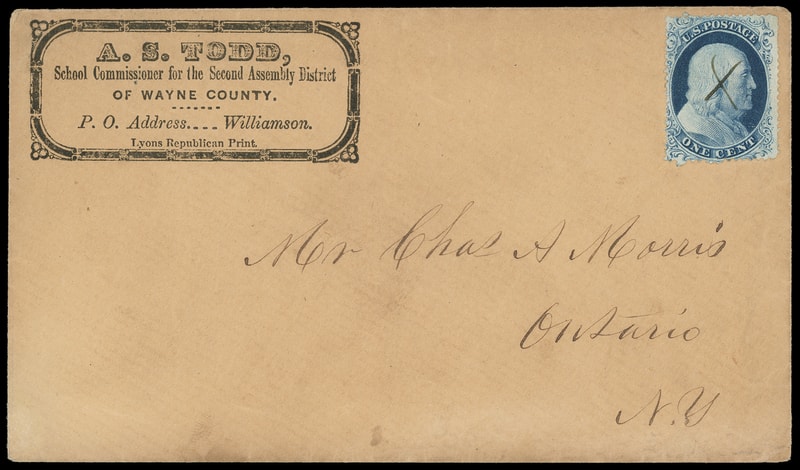 A. S. TODD,
School Commissioner for the Second Assembly District
OF WAYNE COUNTY.
P. O. Address.... Williamson.
Lyons Republican Print.
U.S. POSTAGE
ONE CENT
X
Mr Chas A Morris
Ontario
N.Y